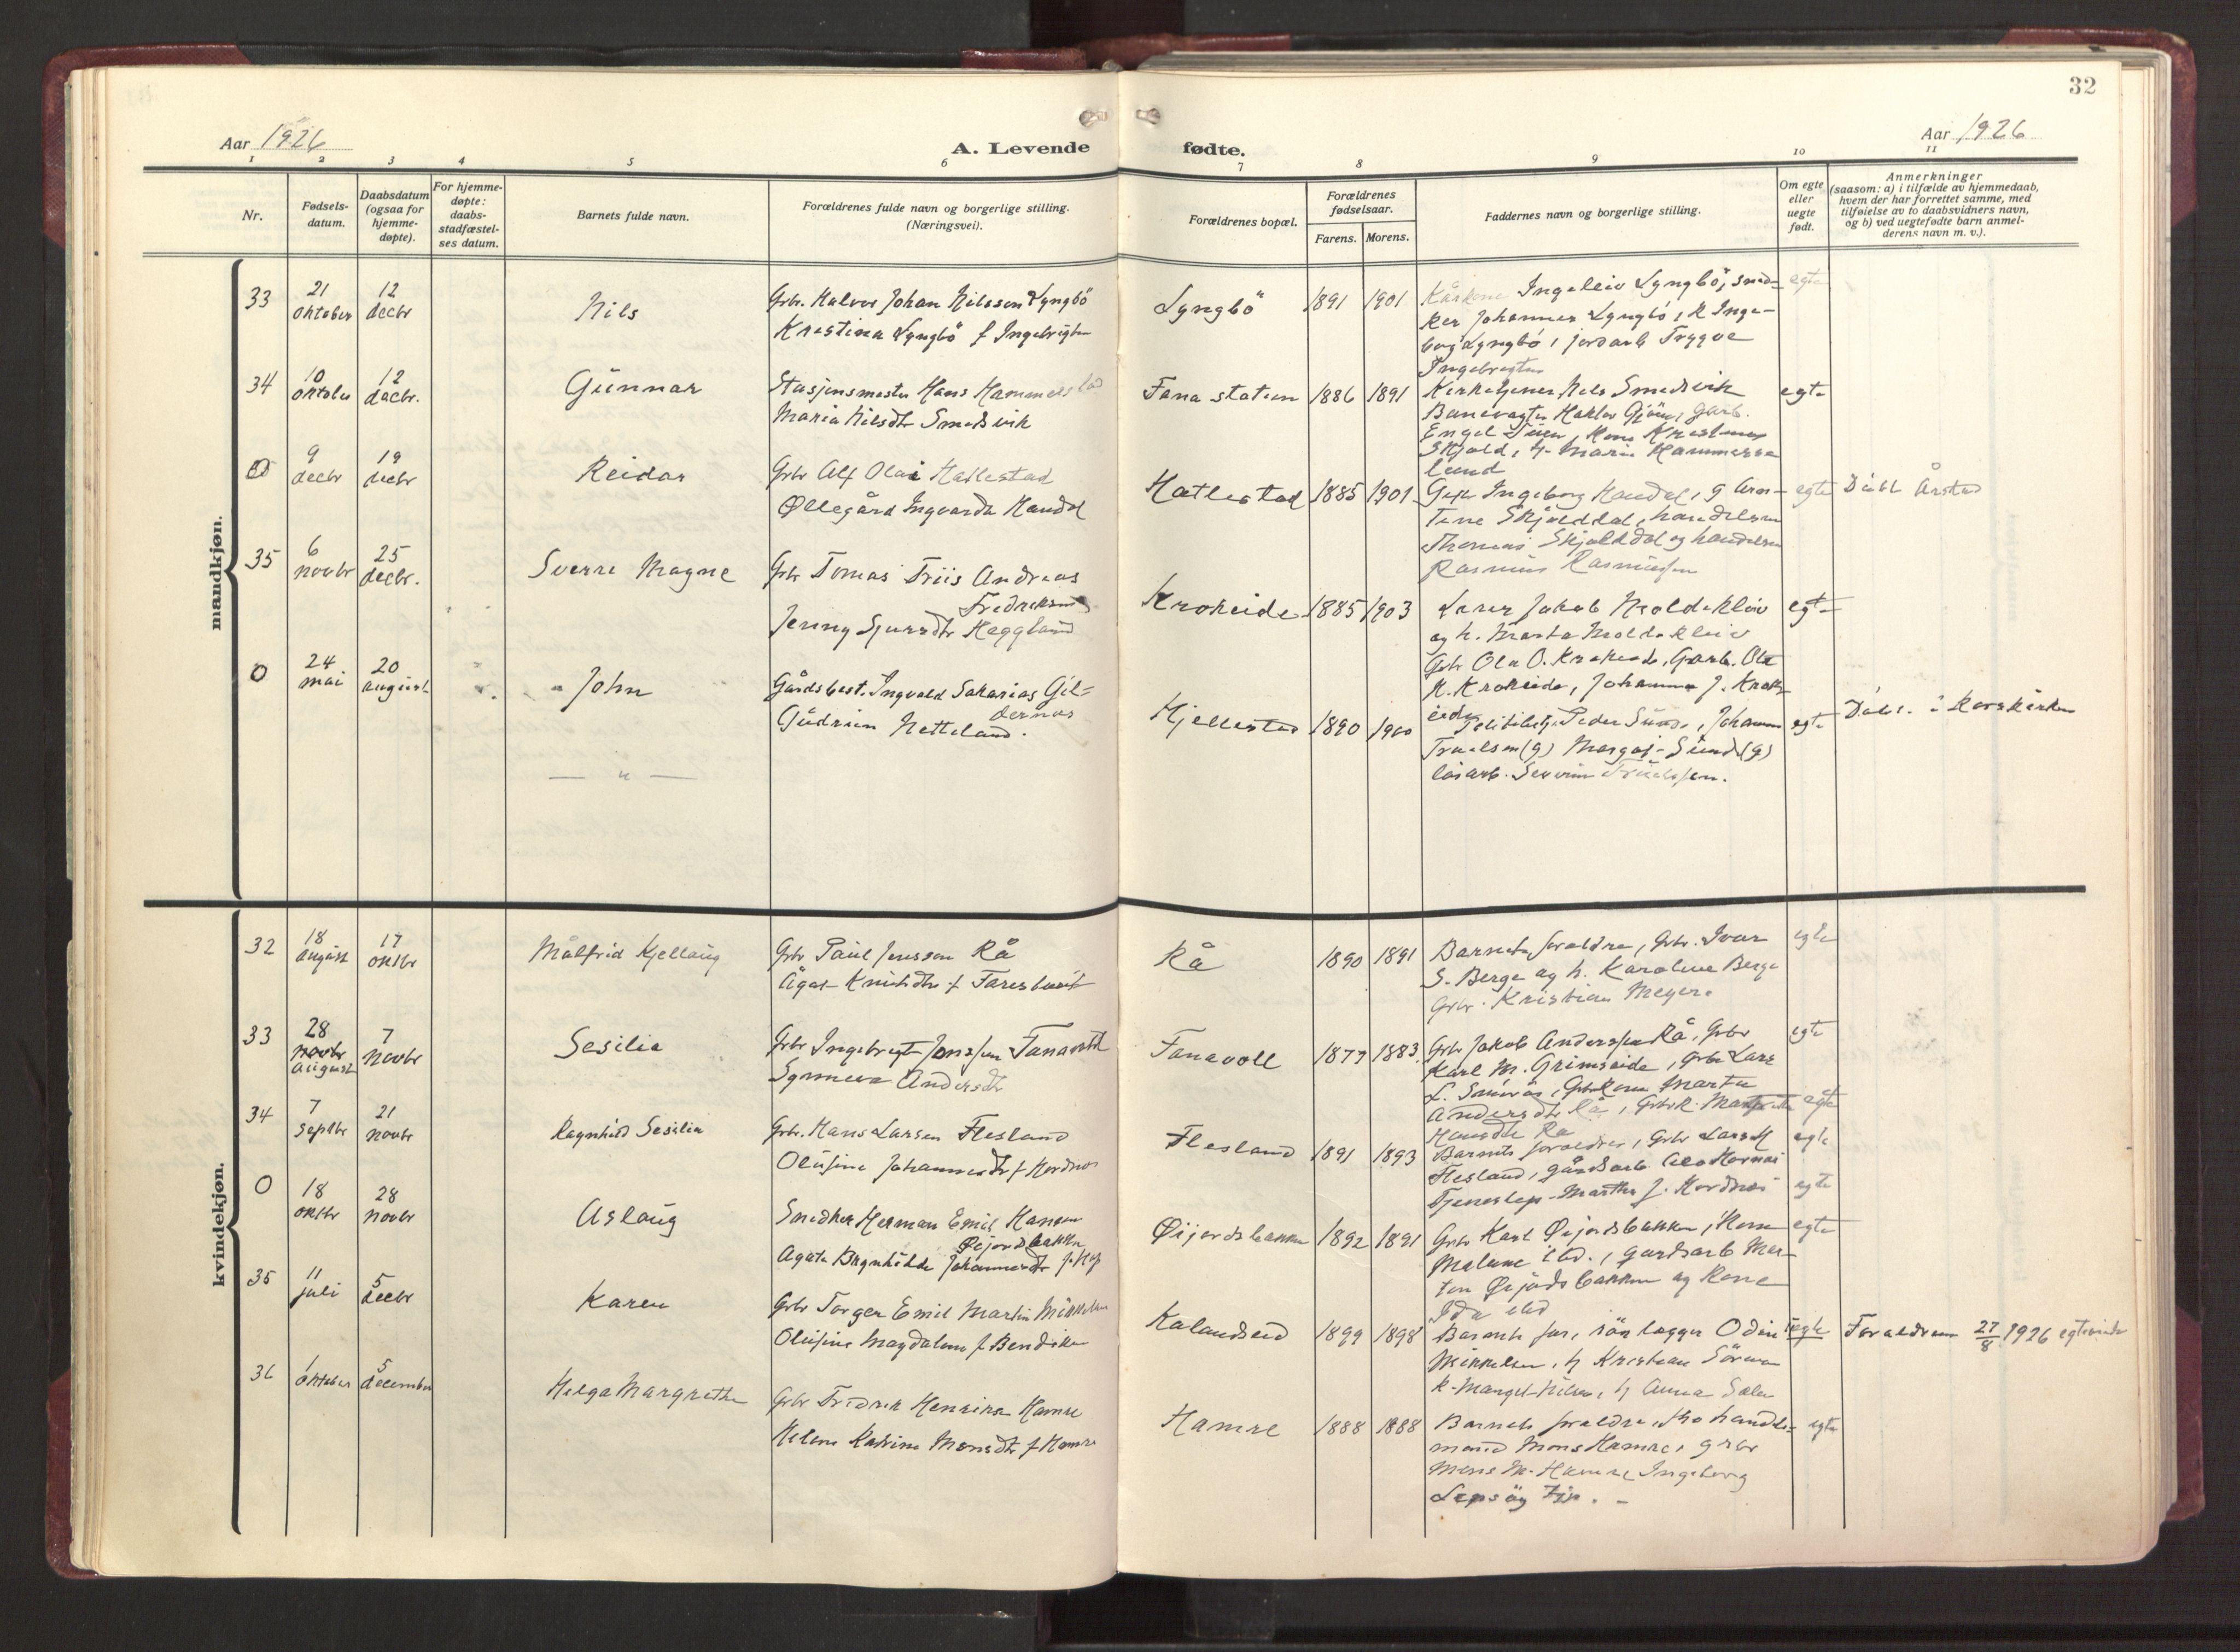 32
Aar 1926
A. Levende
fødte.
Aar 1926
1 2 3 4 5 6 7 8 9 10 11
Nr.
Fødsels-
datum.
Daabsdatum
(ogsaa for
hjemme-
døpte).
For hjemme-
døpte:
daabs-
stadfæstel-
ses datum.
Barnets fulde navn.
Forældrenes fulde navn og borgerlige stilling.
(Næringsvei).
Forældrenes bopæl.
Forældrenes
fødselsaar.
Farens. Morens.
Faddernes navn og borgerlige stilling.
Om egte
eller
uegte
født.
Anmerkninger
(saasom: a) i tilfælde av hjemmedaab,
hvem der har forrettet samme, med
tilføielse av to daabsvidners navn,
og b) ved uegtefødte barn anmel-
derens navn m. v.).
mandkjøn.
33
21
oktober
12
decbr
Nils
Grbr. Halvor Johan Nilssen Lyngbö
Kristina Lyngbö f Ingebrigtsen
Lyngbö
1891 1901
Ingeleiv Lyngbö, sned-
ker Johannes Lyngbö, k Inge-
borg Lyngbö, jordarb Trygve
Ingebrigtsen
egte
34
10
oktober
12
decbr.
Gunnar
Stasjonsmester Hans
Maria Nilsdtr Smedsvik
Fana station
1886 1891
Kirketjener Nils Smedsvik
Banevagter Gjöen, Garb.
Engel Kone Kristense
Skjold, Marie Hammers
lund
egte
0
9
decbr
19
decbr
Reidar
Grbr Alf Olai Hatlestad
Øllegård Ingvardtr Haudal
Hatlestad
1885 1901
Ingeborg Haudal, g Arn-
Tine Skjolddal, handelsm
Thomas Skjolddal og handelsm
Rasmus Rasmussen
egte
Döbt Årstad
35
6
novbr
25
decbr.
Sverre Magne
Grbr Tomas Friis Andreas
Fredriksen
Jenny Sjursdtr Heggland
Krokeide
1885 1903
Lærer Jakob Moldekleiv
og h. Marta Moldekleiv
Grbr Ola O. Krokeide, Garb. Ola
K. Krokeide, Johanna J. Krok-
eide
egte
0
24
mai
20
august
John
Gårdsbest. Ingvald Sakarias Gil-
dernes
Gudrun Netteland.
Hjellestad
1890 1900
Peder Sund, Johanna
Truelsen (g) Sund (g)
lösarb. Severin Truelssen.
egte
Döbt. i Korskirken
— " —
kvindekjøn.
32
18
august
17
oktbr
Målfrid Kjellaug
Grbr Paul Jenssen Rå
Ågot Knutsdtr f
Rå
1890 1891
Barnets foreldre, Grbr. Ivar
S. Berge og h. Karoline Berge
Grbr. Kristian Meyer.
egte
33
28
novbr
august
7
novbr
Sesilie
Grbr Ingebrigt Jonssen Fanavoll
Synneva Andersdtr
Fanavoll
1877 1883
Grbr Jakob Anderssen Rå, Grbr
Karl M. Grimseide, Grbr Lars
L. Smörås, Grbrkone Marta
Andersdtr Rå, Grbrk.
Hansdtr Rå
egte
egte
34
7
septbr
21
novbr
Ragnhild Sesilie
Grbr. Hans Larsen Flesland
Olufine Johannesdtr f Kordnes
Flesland
1891 1893
Barnets foreldre, Grbr Lars H
Flesland, gårdsarb
Tjenestep. Martha J. Kordnes
egte
egte
0
18
oktbr
28
novbr
Aslaug
Snedker Herman Emil Hansen
Øijordsbakken
Agate Brynhilde Johannesdtr f. Hop
Øijordsbakken
1892 1891
Grbr Karl Øijordsbakken, Kone
Malene ibd., gardsarb Mar-
ton Øijordsbakken og Kone
Ida ibd
egte
35
11
juli
5
decbr
Karen
Grbr Torger Emil Martin Mikkelsen
Olufine Magdalene f Bendiksen
Kalandseid
1899 1898
Barnets far, rörlegger Odin
Mikkelsen, Kristian Sörensen
egte
Foreldrene 27/8 1926 egteviede
36
1
oktober
5
december
Helga Margrethe
Grbr Fredrik Henriksen Hamre
Helene Katrine Monsdtr f Hamre
Hamre
1888 1888
Barnets foreldre, handels-
mand Mons Hamre, grbr
Mons M. Hamre Ingeborg
Lepsöy Tjp. -
egte